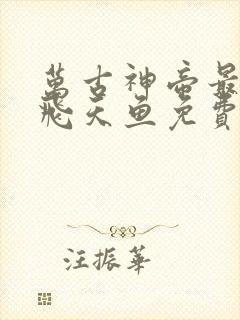 萬古神帝最
飛天魚免費
汪振華